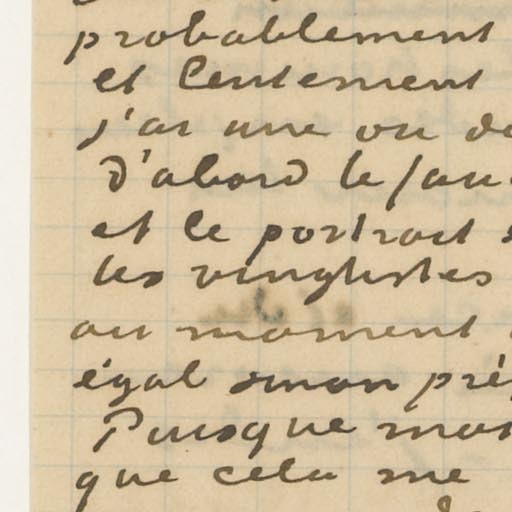 probablement
et lentement
j'ai une ou de
D'abord le fau
et le portrait
les vingtistes
au moment
égal sinon pré
Puisque mon
que cela me